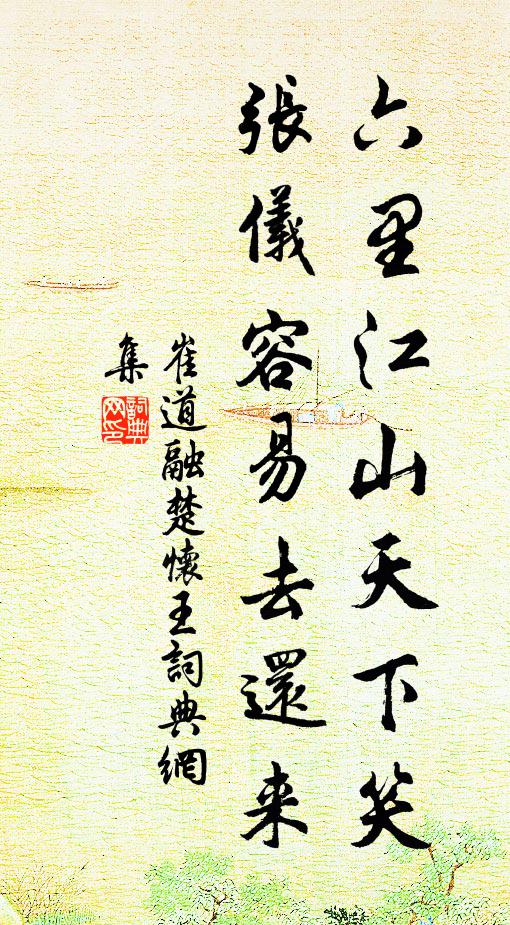 六里江山天下笑
張儀容易去還来
崔道融楚懷王詞典網
集
詞典网印